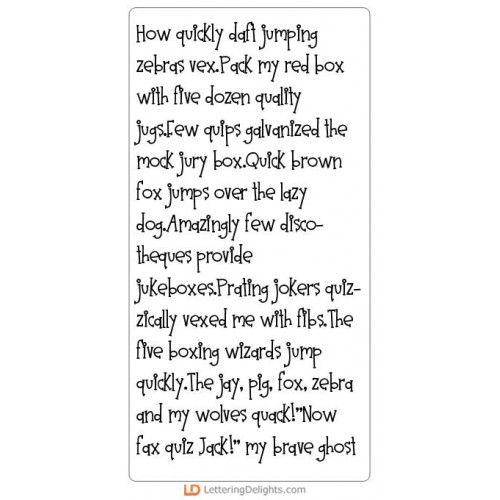 How quickly daft jumping
zebras vex.Pack my red box
with five dozen quality
jugs.Few quips galvanized the
mock jury box.Quick brown
fox jumps over the lazy
dog.Amazingly few disco-
theques provide
jukeboxes.Prating jokers quiz-
zically vexed me with fibs.The
five boxing wizards jump
quickly.The jay, pig, fox, zebra
and my wolves quack!"Now
fax quiz Jack!" my brave ghost
LD LetteringDelights.com